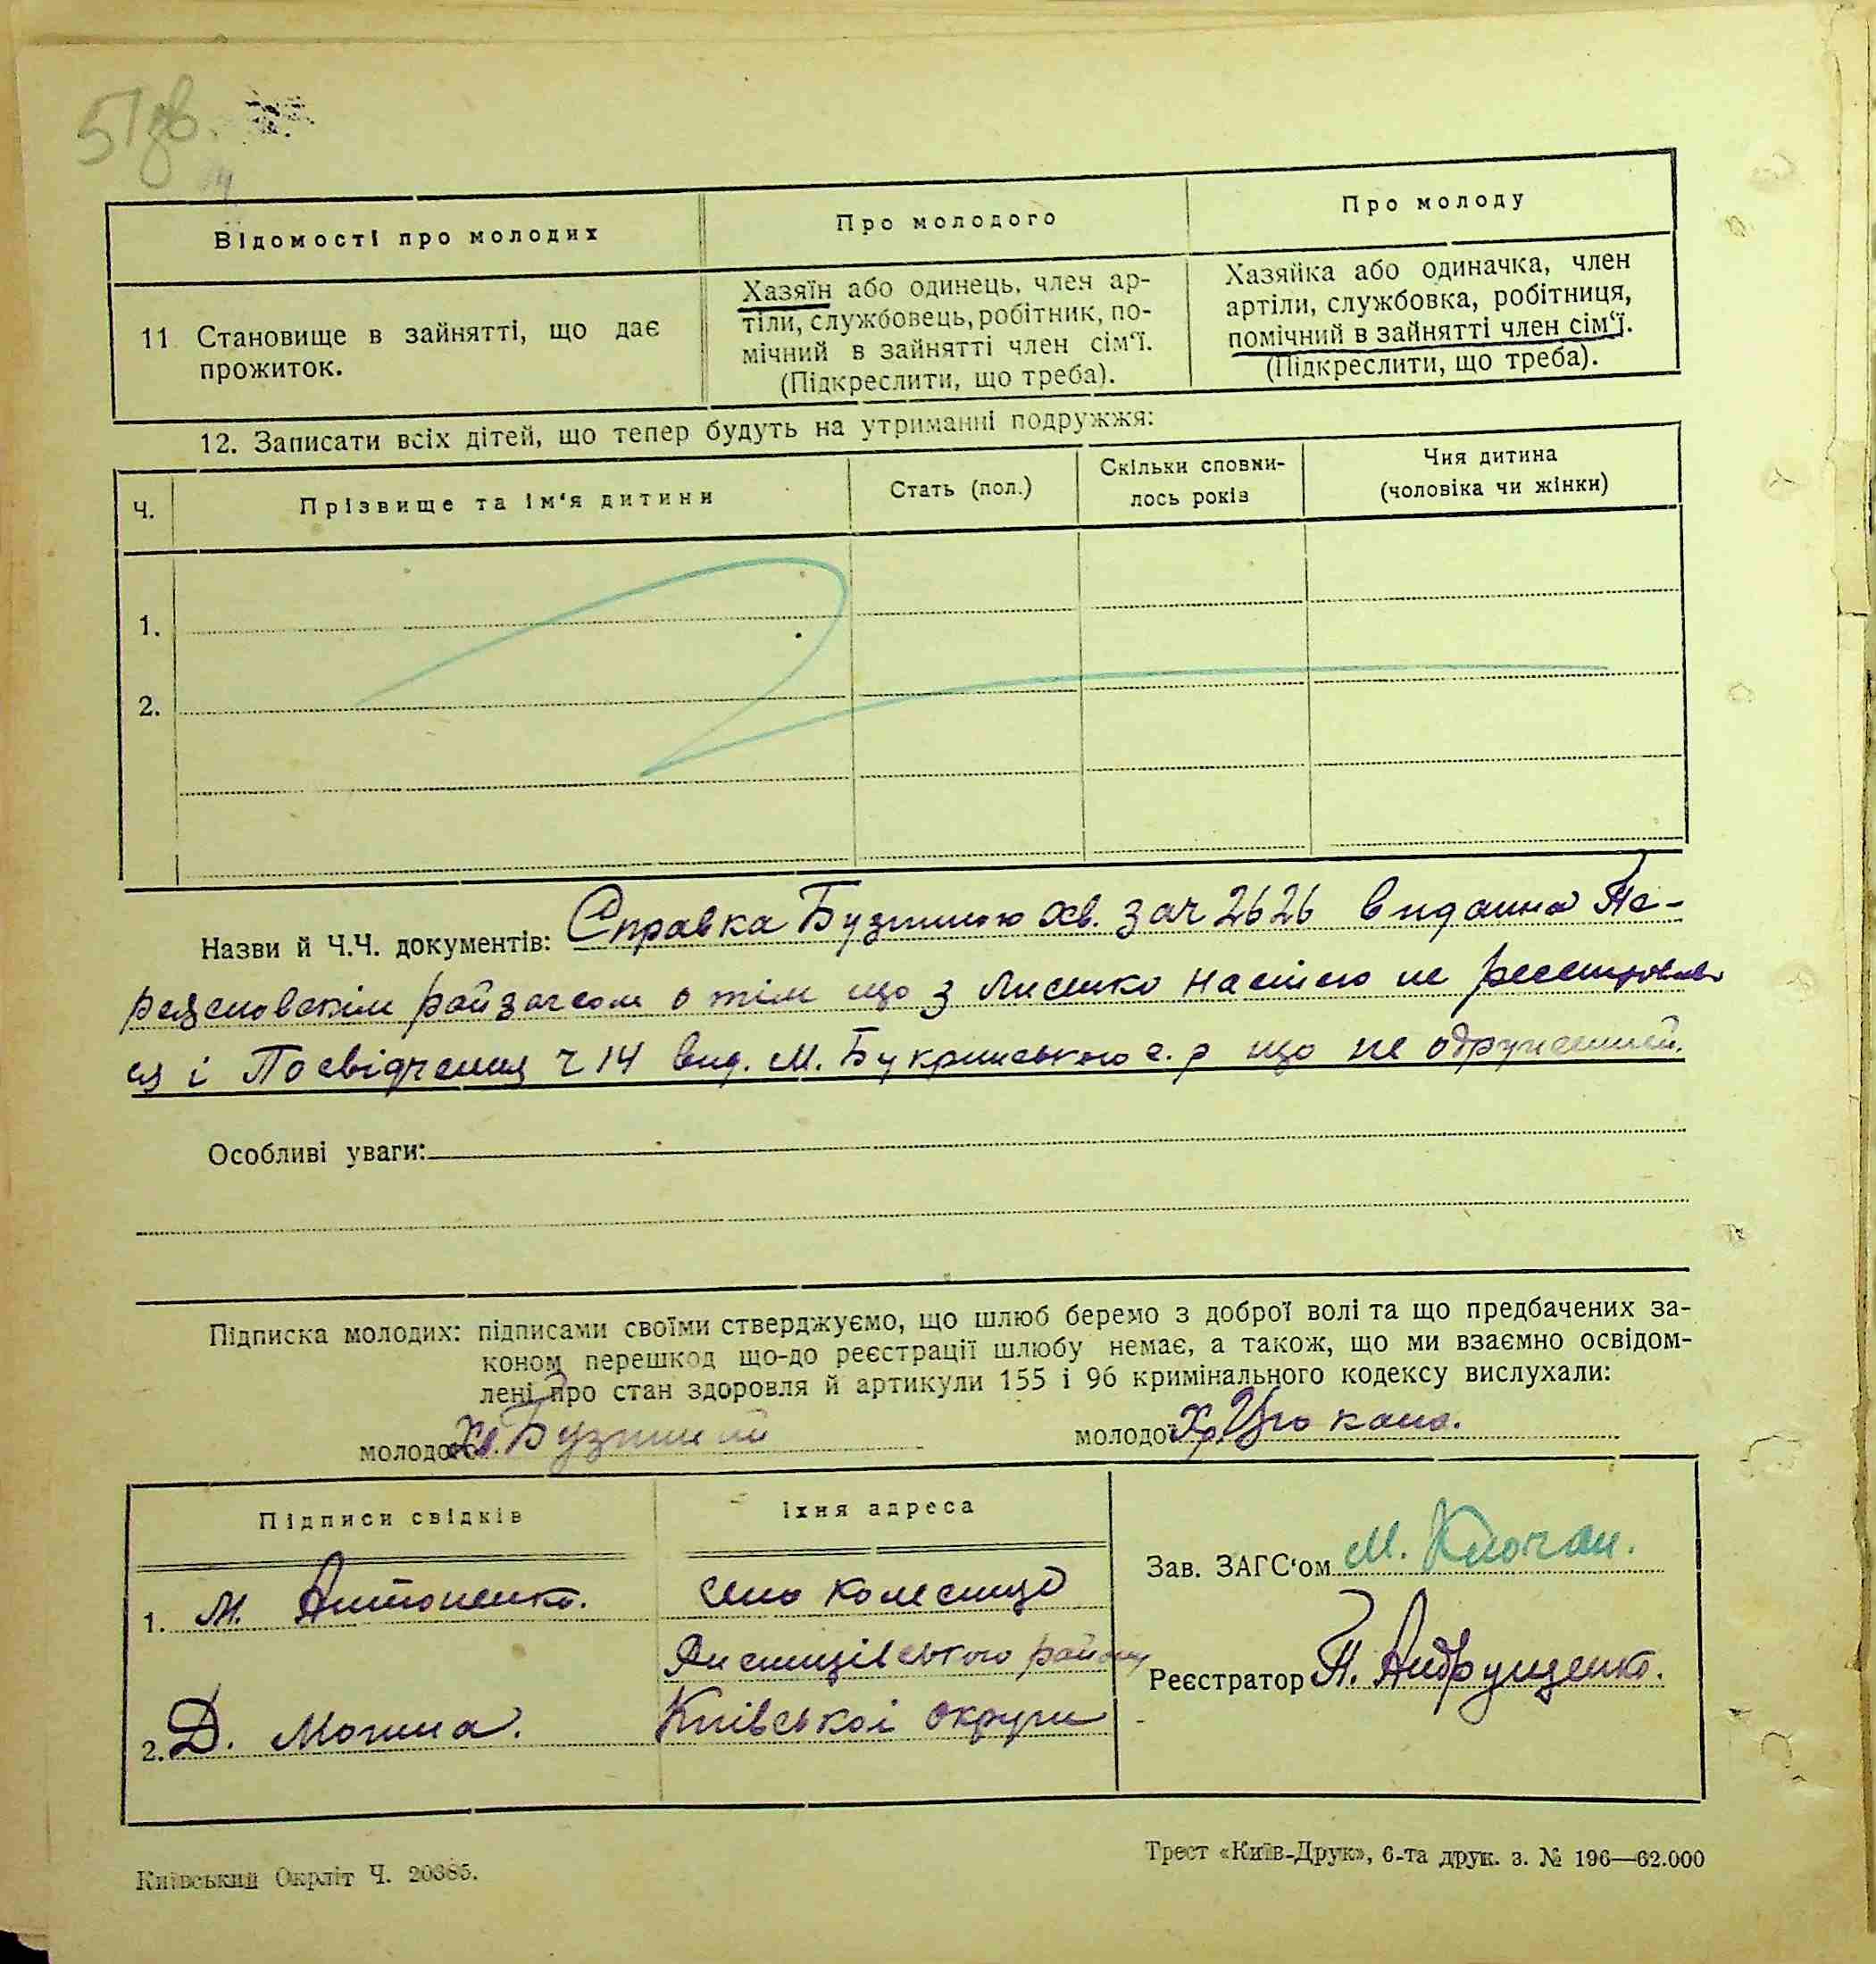 51зв.
Відомості про молодих
Про молодого
Про молоду
11 Становище в зайнятті, що дає
прожиток.
Хазяїн або одинець, член ар-
тіли, службовець, робітник, по-
мічний в зайнятті член сім‘ї.
(Підкреслити, що треба).
Хазяйка або одиначка, член
артіли, службовка, робітниця,
помічний в зайнятті член сім‘ї.
(Підкреслити, що треба).
12. Записати всіх дітей, що тепер будуть на утриманні подружжя:
Ч.
Прізвище та ім‘я дитини
Стать (пол.)
Скільки сповни-
лось років
Чия дитина
(чоловіка чи жінки)
1.
2.
Назви й Ч.Ч. документів: Справка Бузиною Хв. за ч 2626 видання Пе-
реяславским райзагсом о тім що з Лисенко Настею не реестровав
ся і Посвідчення ч 14 вид. М. Букринською с. р що не одружений.
Особливі уваги:
Підписка молодих: підписами своїми стверджуємо, що шлюб беремо з доброї волі та що предбачених за-
коном перешкод що-до реєстрації шлюбу немає, а також, що ми взаємно освідом-
лені про стан здоровля й артикули 155 і 96 кримінального кодексу вислухали:
молодого Хв. Бузиний
молодої Хр. Цюкана.
Підписи свідків
їхня адреса
1. М. Антоненко.
село
району
2. Д. Могила.
Київської округи
Зав. ЗАГС‘ом М. Клочан.
Реєстратор П. Андрущенко.
Київський Окрліт Ч. 20385.
Трест «Київ-Друк», 6-та друк. з. № 196—62.000